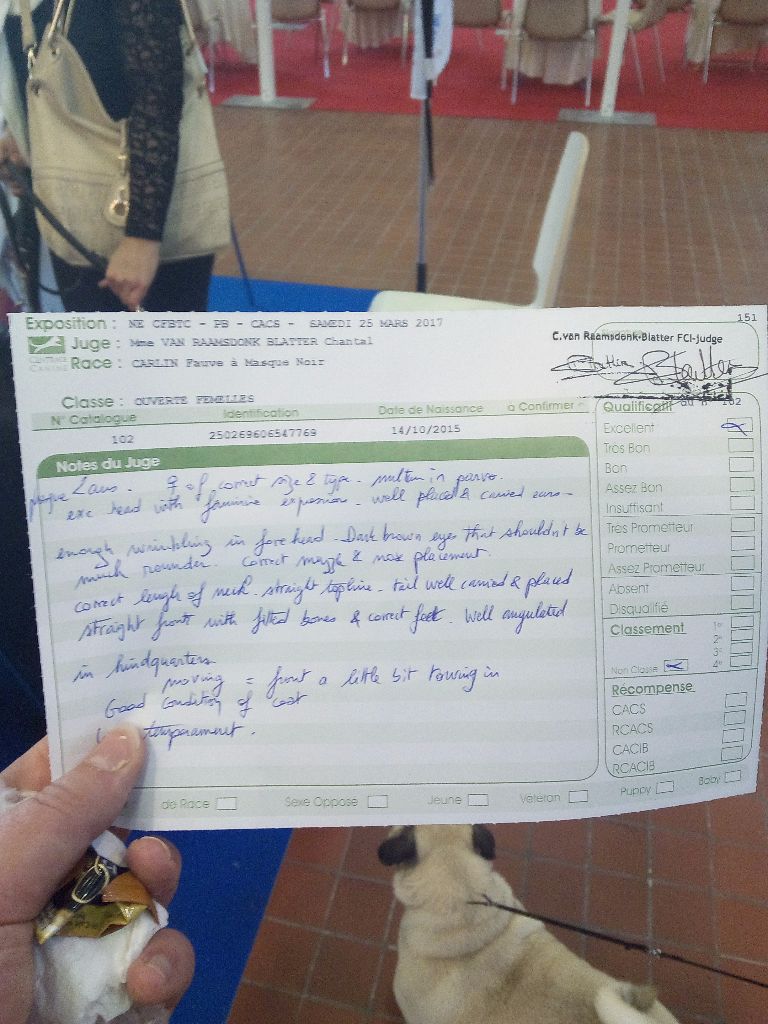 151
Exposition : NE CFBTC - PB - CACS - SAMEDI 25 MARS 2017
Juge : Mme VAN RAAMSDONK BLATTER Chantal
C.van Raamsdonk-Blatter FCI-Judge
Race : CARLIN Fauve à Masque Noir
Classe : OUVERTE FEMELLES
N° Catalogue Identification Date de Naissance à Confirmer
102 250269606547769 14/10/2015
Notes du Juge
♀ of correct size & type - multum in parvo.
exc head with feminine expression - well placed & carried ears -
enough wrinkling in forehead - Dark brown eyes that shouldn't be
much rounder. correct muzzle & nose placement.
correct length of neck. straight topline - tail well carried & placed
straight front with fitted bones & correct feet. Well angulated
in hindquarters
moving = front a little bit towing in
Good condition of coat
temperament.
Qualificatif du N° 102
Excellent
Très Bon
Bon
Assez Bon
Insuffisant
Très Prometteur
Prometteur
Assez Prometteur
Absent
Disqualifié
Classement 1er
2e
3e
Non Classé 4e
Récompense
CACS
RCACS
CACIB
RCACIB
de Race Sexe Opposé Jeune Vétéran Puppy Baby